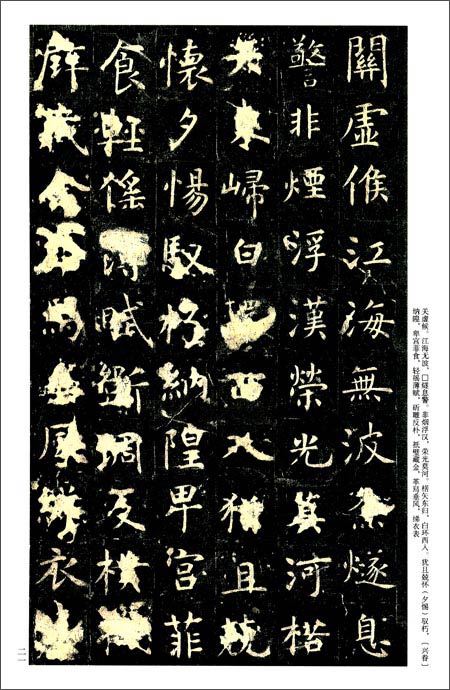 關虛候江海無波燧息
警非煙浮漢榮光莫河楛
矢東歸白環西入猶且兢
懷夕惕馭朽納隍卑宮菲
食輕徭薄賦斲彫反樸抵
璧藏金革舄垂風綈衣表
关虚候。江海无波，□燧息警。非烟浮汉，荣光莫河。楛矢东归，白环西入。犹且兢怀（夕惕）驭朽，〔兴眷〕
纳隍。卑宫菲食，轻徭薄赋，斫雕反朴，抵璧藏金，革舄垂风，绨衣表
二一